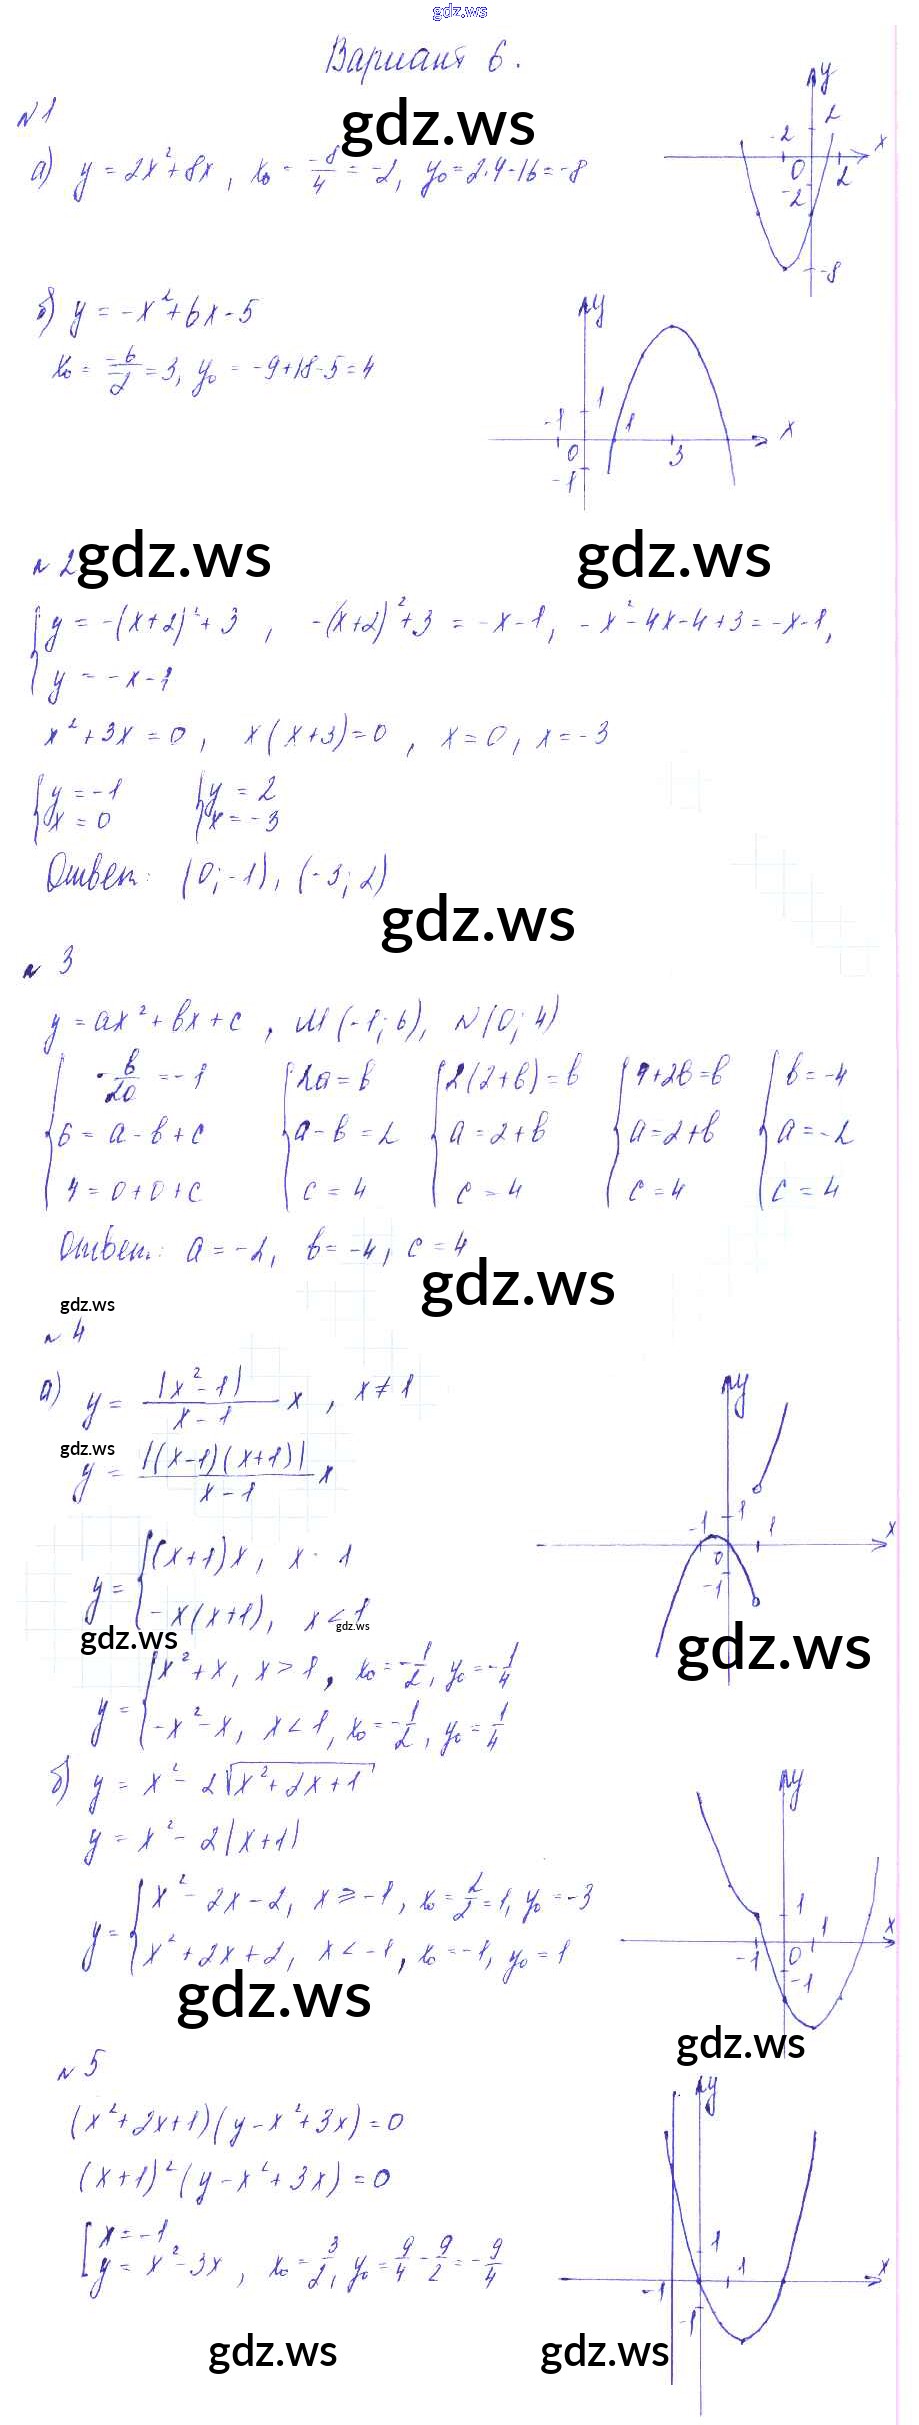 gdz.ws
Вариант 6.
№1
gdz.ws
а) y = 2x²+8x, x₀ = -8/4 = -2, y₀=2·4-16=-8
y
2
-2
x
0
2
-2
-8
б) y = -x²+6x-5
x₀ = -6/-2 = 3, y₀ = -9+18-5=4
y
1
-1
1
x
0
3
-1
№2
gdz.ws
gdz.ws
{ y = -(x+2)²+3, -(x+2)²+3 = -x-1, -x²-4x-4+3=-x-1,
y = -x-1
x²+3x=0, x(x+3)=0, x=0, x=-3
{ y=-1 { y=2
x=0 x=-3
Ответ: (0;-1), (-3;2)
gdz.ws
№3
y=ax²+bx+c, M(-1;6), N(0;4)
{ -b/2a = -1 { 2a=b { 2(2+b)=b { 4+2b=b { b=-4
6=a-b+c a-b=2 a=2+b a=2+b a=-2
4=0+0+c c=4 c=4 c=4 c=4
Ответ: a=-2, b=-4, c=4
gdz.ws
gdz.ws
№4
а) y = |x²-1|/(x-1) x, x≠1
gdz.ws
y = |(x-1)(x+1)|/(x-1) x
y
1
-1
1
x
0
-1
y = { (x+1)x, x 1
-x(x+1), x<1
gdz.ws
gdz.ws
gdz.ws
y = { x²+x, x>1, x₀=-1/2, y₀=-1/4
-x²-x, x<1, x₀=-1/2, y₀=1/4
б) y = x²-2√(x²+2x+1)
y = x²-2|x+1|
y = { x²-2x-2, x≥-1, x₀=2/2=1, y₀=-3
x²+2x+2, x<-1, x₀=-1, y₀=1
y
1
1
x
-1
0
-1
gdz.ws
gdz.ws
№5
(x²+2x+1)(y-x²+3x)=0
(x+1)²(y-x²+3x)=0
[ x=-1
y=x²-3x, x₀=3/2, y₀=9/4-9/2=-9/4
y
1
1
x
-1
-1
gdz.ws
gdz.ws